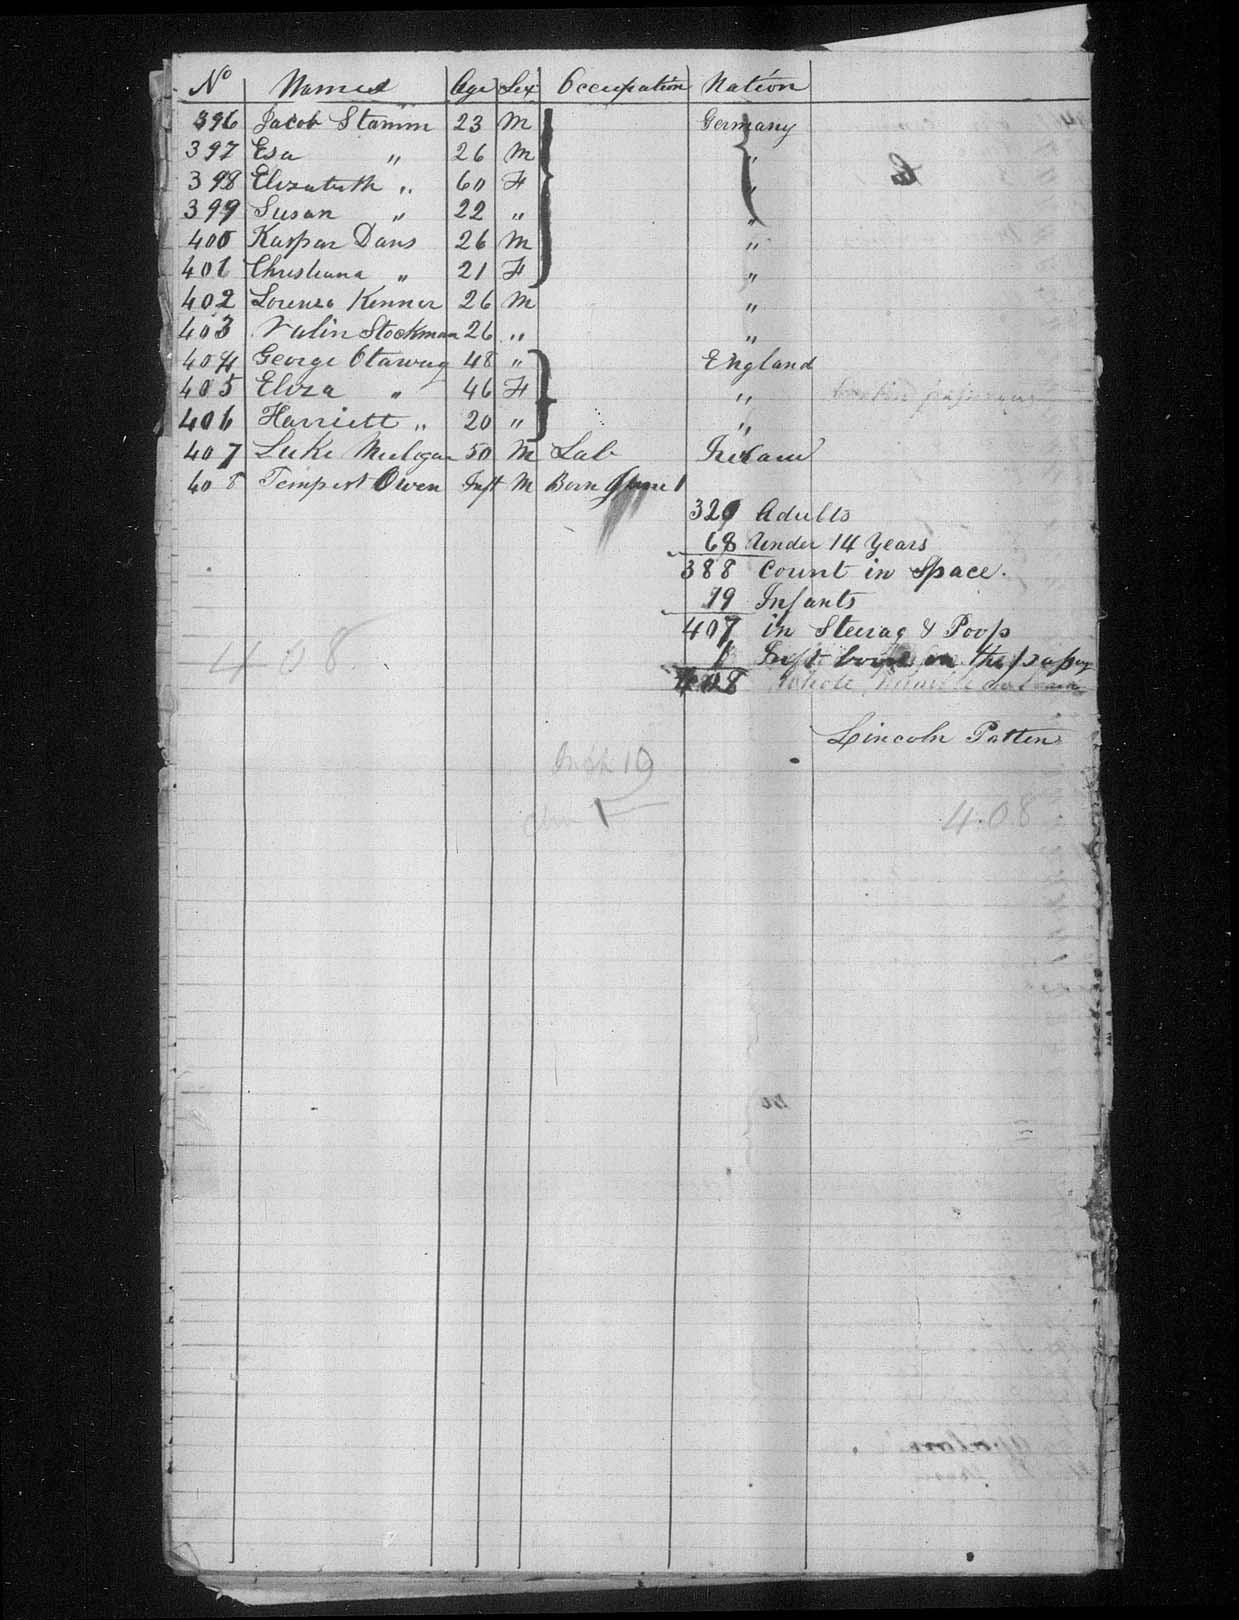 No Names Age Sex Occupation Nation
396 Jacob Stamm 23 M Germany
397 Esa " 26 M "
398 Elizabeth " 60 F "
399 Susan " 22 " "
400 Kaspar Dans 26 M "
401 Christiana " 21 F "
402 Lorenzo Kenner 26 M "
403 Valin Stockman 26 " "
404 George 48 " England
405 Eliza " 46 F "
406 Harriett " 20 " "
407 Luke Mulogan 50 M Lab Ireland
408 Tempest Owen Inft M Born June 1
320 Adults
68 Under 14 Years
388 Count in Space.
19 Infants
407 in Steerag & Poop
1 Inft born on the passag
408 Whole
408
Lincoln Patten
19
408